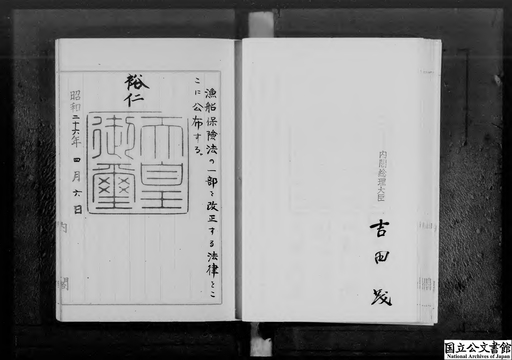 漁船保険法の一部を改正する法律をここに公布する。
裕仁
天皇御璽
昭和二十六年四月六日
内閣総理大臣
吉田茂
国立公文書館
National Archives of Japan